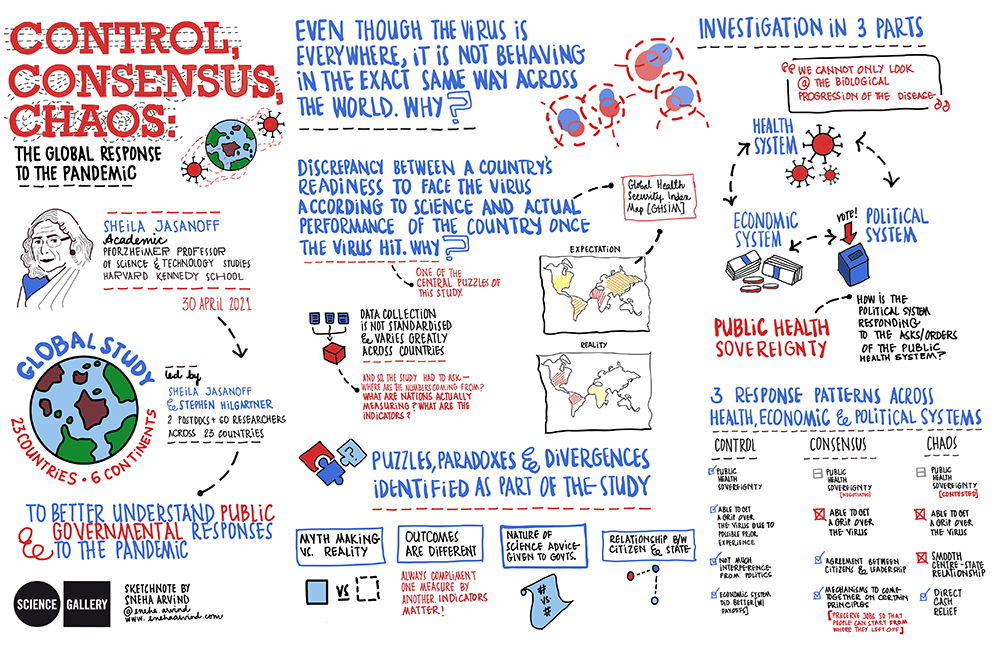 CONTROL,
CONSENSUS,
CHAOS:
THE GLOBAL RESPONSE
TO THE PANDEMIC
SHEILA JASANOFF
Academic
PFORZHEIMER PROFESSOR
OF SCIENCE & TECHNOLOGY STUDIES
HARVARD KENNEDY SCHOOL
30 APRIL 2021
GLOBAL STUDY
23 COUNTRIES • 6 CONTINENTS
led by
SHEILA JASANOFF
& STEPHEN HILGARTNER
2 POSTDOCS + 60 RESEARCHERS
ACROSS 23 COUNTRIES
TO BETTER UNDERSTAND PUBLIC
& GOVERNMENTAL RESPONSES
TO THE PANDEMIC
SCIENCE GALLERY
SKETCHNOTE BY
SNEHA ARVIND
@sneha.arvind
www.snehaarvind.com
EVEN THOUGH THE VIRUS IS
EVERYWHERE, IT IS NOT BEHAVING
IN THE EXACT SAME WAY ACROSS
THE WORLD. WHY?
DISCREPANCY BETWEEN A COUNTRY'S
READINESS TO FACE THE VIRUS
ACCORDING TO SCIENCE AND ACTUAL
PERFORMANCE OF THE COUNTRY ONCE
THE VIRUS HIT. WHY?
Global Health
Security Index
Map [GHSIM]
ONE OF THE
CENTRAL PUZZLES OF
THIS STUDY.
EXPECTATION
REALITY
DATA COLLECTION
IS NOT STANDARDISED
& VARIES GREATLY
ACROSS COUNTRIES
AND SO, THE STUDY HAD TO ASK —
WHERE ARE THE NUMBERS COMING FROM?
WHAT ARE NATIONS ACTUALLY
MEASURING? WHAT ARE THE
INDICATORS?
PUZZLES, PARADOXES & DIVERGENCES
IDENTIFIED AS PART OF THE STUDY
MYTH MAKING
VS. REALITY
VS
OUTCOMES
ARE DIFFERENT
ALWAYS COMPLIMENT
ONE MEASURE BY
ANOTHER INDICATORS
MATTER!
NATURE OF
SCIENCE ADVICE
GIVEN TO GOVTS.
#
VS.
#
RELATIONSHIP B/W
CITIZEN & STATE
INVESTIGATION IN 3 PARTS
"WE CANNOT ONLY LOOK
@ THE BIOLOGICAL
PROGRESSION OF THE DISEASE."
HEALTH
SYSTEM
ECONOMIC
SYSTEM
VOTE!
POLITICAL
SYSTEM
PUBLIC HEALTH
SOVEREIGNTY
HOW IS THE
POLITICAL SYSTEM
RESPONDING
TO THE ASKS/ORDERS
OF THE PUBLIC
HEALTH SYSTEM?
3 RESPONSE PATTERNS ACROSS
HEALTH, ECONOMIC & POLITICAL SYSTEMS
CONTROL
PUBLIC
HEALTH
SOVEREIGNTY
ABLE TO GET
A GRIP OVER
THE VIRUS DUE TO
POSSIBLE PRIOR
EXPERIENCE
NOT MUCH
INTERFERENCE
FROM POLITICS
ECONOMIC SYSTEM
DID BETTER [W/
PAYOFFS]
CONSENSUS
PUBLIC
HEALTH
SOVEREIGNTY
[NEGOTIATED]
ABLE TO GET
A GRIP OVER
THE VIRUS
AGREEMENT BETWEEN
CITIZENS & LEADERSHIP
MECHANISMS TO COME
TOGETHER ON CERTAIN
PRINCIPLES
[PRESERVE JOBS SO THAT
PEOPLE CAN START FROM
WHERE THEY LEFT OFF]
CHAOS
PUBLIC
HEALTH
SOVEREIGNTY
[CONTESTED]
ABLE TO GET
A GRIP OVER
THE VIRUS
SMOOTH
CENTRE-STATE
RELATIONSHIP
DIRECT
CASH
RELIEF